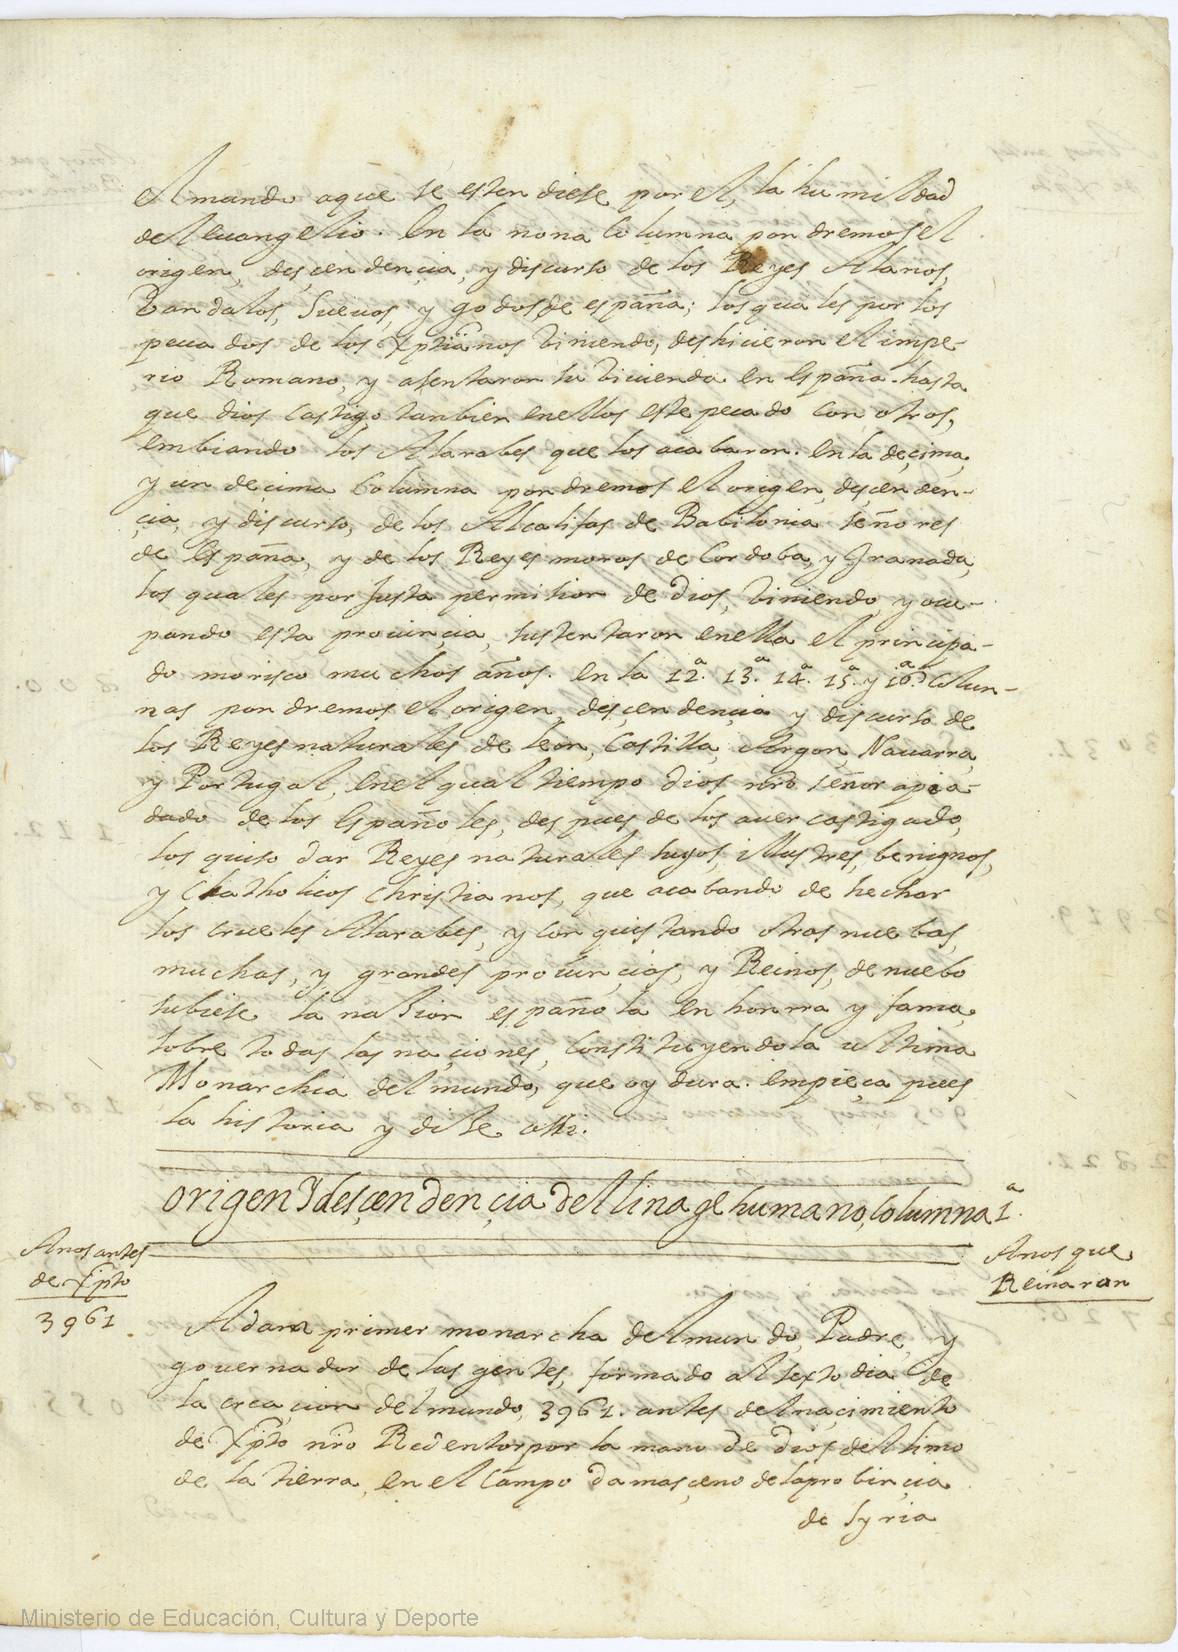 el mundo aque se estendiese por el, la humildad
del euangelio. En la nona Columna pondremos el
origen, desçendençia, y discurso de los Reyes Alanos,
Bandalos, Sueuos, y godos, de españa; los quales por los
pecados de los Xp̃tianos biniendo, deshicieron el impe-
rio Romano, y asentaron su biuienda en españa. hasta
que dios Castigo tanbien enellos este pecado con otros,
embiando los Alarabes que los acabaron. En la deçima,
y un deçima Columna pondremos el origen, desçenden-
çia, y discurso, de los Abcalifas de Babilonia señores
de España, y de los Reyes moros de Cordoba, y Granada,
los quales por Justa permision de Dios, biniendo, y ocu-
pando esta prouinçia, sustentaron enella el prinçipa-
do morisco muchos años. En la 12.ª 13.ª 14.ª 15.ª y 16.ª Colun-
nas pondremos el origen, desçendençia y discurso de
los Reyes naturales de león, Castilla, Aragon, Nauarra,
y Portugal, En el qual tiempo Dios nr̃o señor apia-
dado de los Españoles, despues de los auer castigado,
los quiso dar Reyes naturales suyos, illustres, benignos,
y Chatholicos Christianos, que acabando de hechar
los crueles Alarabes, y conquistando otras nuebas,
muchas, y grandes prouinçias, y Reinos, de nuebo
subiese la nasion española en honrra y fama,
sobre todas las naçiones, Constituyendola ultima
Monarchia del mundo, que oy dura. Empieça pues
la historia y dise assi.
origen Y desçendençia del linage humano, Columna 1.ª
Anos antes
de Xp̃to
3961
Anos que
Reinaron
Adam primer monarcha del mundo, Padre, y
gouernador de las gentes, formado al sexto dia de
la creaçion del mundo, 3961. antes del naçimiento
de Xp̃to nr̃o Redentor por la mano de Dios del limo
de la tierra, en el Campo damasçeno de la probinçia
de Syria
Ministerio de Educación, Cultura y Deporte